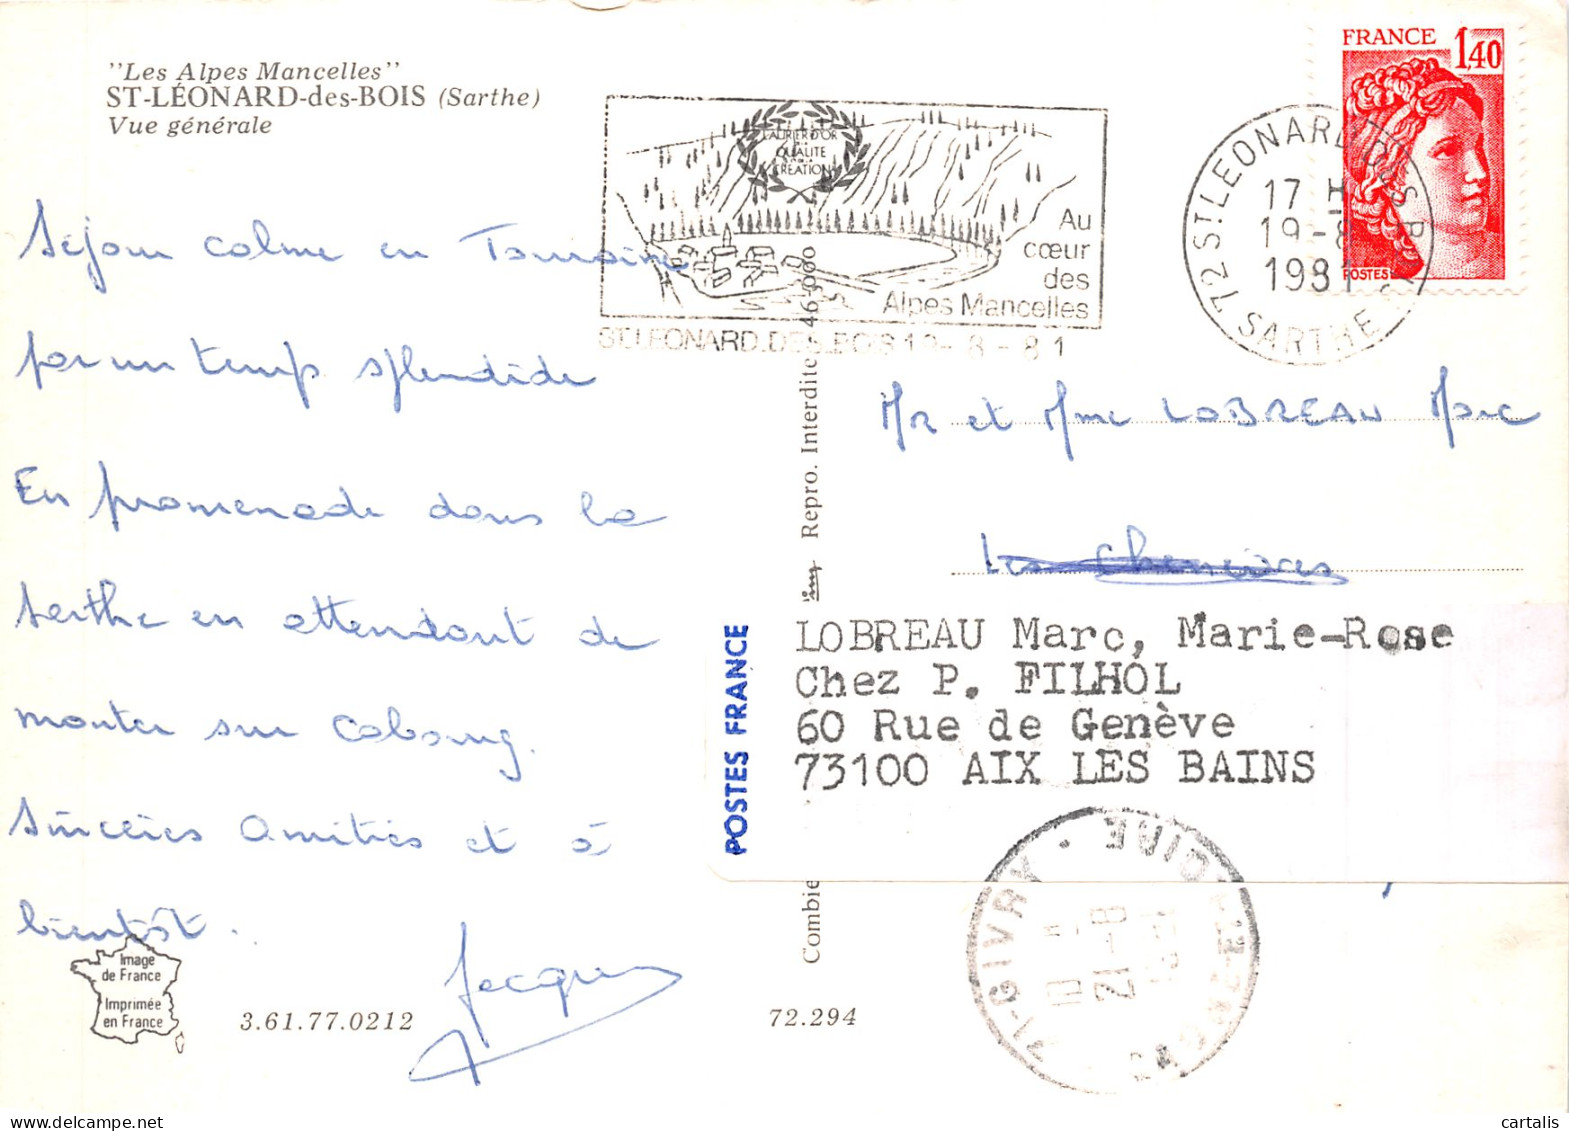 "Les Alpes Mancelles"
ST-LÉONARD-des-BOIS (Sarthe)
Vue générale
FRANCE 1,40
POSTES
LAURIER D'OR
QUALITE
CREATION
Au
cœur
des
Alpes Mancelles
ST.LEONARD.DES.BOIS 19-8-81
72 ST LEONARD DES B
17 H
19-8
1981
SARTHE
Séjour calme en Touraine
par un temps splendide
En promenade dans la
Sarthe en attendant de
monter sur Cabourg.
Sincères Amitiés et à
bientôt.
Jacques
MR et Mme LOBREAU Marc
Les
LOBREAU Marc, Marie-Rose
Chez P. FILHOL
60 Rue de Genève
73100 AIX LES BAINS
POSTES FRANCE
46-9000
Repro. Interdite
Combie
71-GIVRY
10 H
21-8
LOIRE
Image
de France
Imprimée
en France
3.61.77.0212
72.294
cartalis